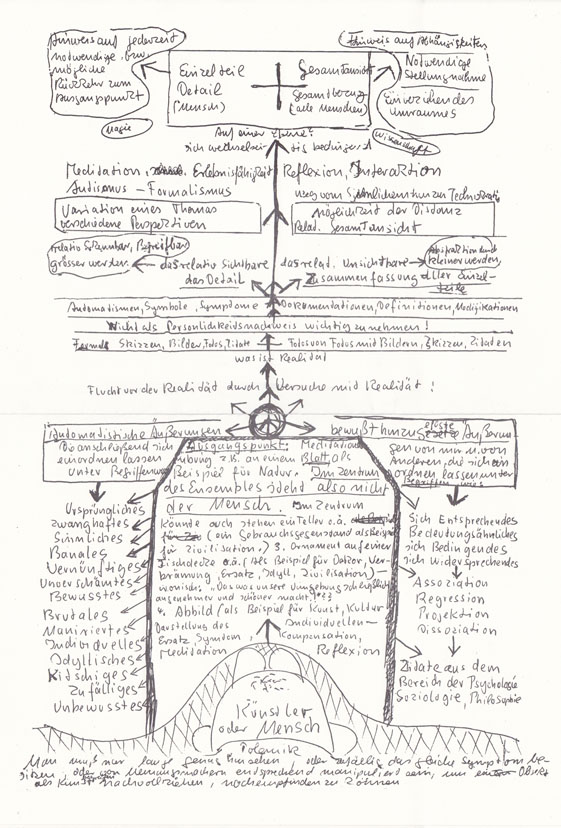 Hinweis auf jederzeit
notwendige bzw.
mögliche
Rückkehr zum
Ausgangspunkt
Magie
Einzelteil
Detail
(Mensch)
Gesamtansicht
Gesamtbezug
(alle Menschen)
Hinweis auf Abhängigkeiten
Notwendige
Stellungnahme
Einbeziehen des
Umraumes
Wissenschaft
Auf einer Ebene!
sich wechselseitig bedingend
Meditation, Erlebnisfähigkeit
Autismus – Formalismus
Reflexion, Interaktion
weg vom Sinnlichen hin zur Technokratie
Variation eines Themas
verschiedene Perspektiven
Möglichkeit der Distanz
Relat. Gesamtansicht
relativ Schaubar, Begreifbar
grösser werden
das relativ Sichtbare
das Detail
das relat. Unsichtbare
Zusammenfassung aller Einzelteile
Abstraktion durch
kleiner werden,
Automatismen, Symbole, Symptome Dokumentationen, Definitionen, Modifikationen
Nicht als Persönlichkeitsnachweis wichtig zu nehmen!
Formeln Skizzen, Bilder, Fotos, Zitate – Fotos von Fotos mit Bildern, Skizzen, Zitaten
was ist Realität
Flucht vor der Realität durch Versuche mit Realität!
Automatistische Äußerungen
Die anschließend sich
einordnen lassen
unter Begriffen wie
bewußt hinzugefügte Äußerungen
von mir u. von
Anderen, die sich einordnen
lassen unter
Begriffen wie
Ursprüngliches
zwanghaftes
Sinnliches
Banales
Vernünftiges
Unverschämtes
Bewusstes
Brutales
Manieriertes
Individuelles
Idyllisches
Kitschiges
Zufälliges
Unbewusstes
Ausgangspunkt: Meditationsübung
z.B. an einem Blatt als
Beispiel für Natur. Im Zentrum
des Ensembles steht also nicht
der Mensch. Im Zentrum
könnte auch stehen ein Teller o.ä.
(ein Gebrauchsgegenstand als Beispiel
für Zivilisation.) 3. Ornament auf einer
Tischdecke o.ä. (Als Beispiel für Dekor, Verbrämung,
Ersatz, Idyll, Zivilisation)
ironisch: "Das was unsere Umgebung scheußlich
angenehmer und schöner macht."
4. Abbild (als Beispiel für Kunst, Kultur
Darstellung des Individuellen –
Ersatz, Symptom, Kompensation,
Meditation Reflexion
Sich Entsprechendes
Bedeutungsähnliches
sich Bedingendes
sich Widersprechendes
Assoziation
Regression
Projektion
Dissoziation
Zitate aus dem
Bereich der Psychologie
Soziologie, Philosophie
Künstler
oder Mensch
Polemik
Man muß nur lange genug hinsehen oder zufällig das gleiche Symptom besitzen,
oder von Meinungsmachern entsprechend manipuliert sein, um Objekt
als Kunst nachvollziehen, nachempfinden zu können